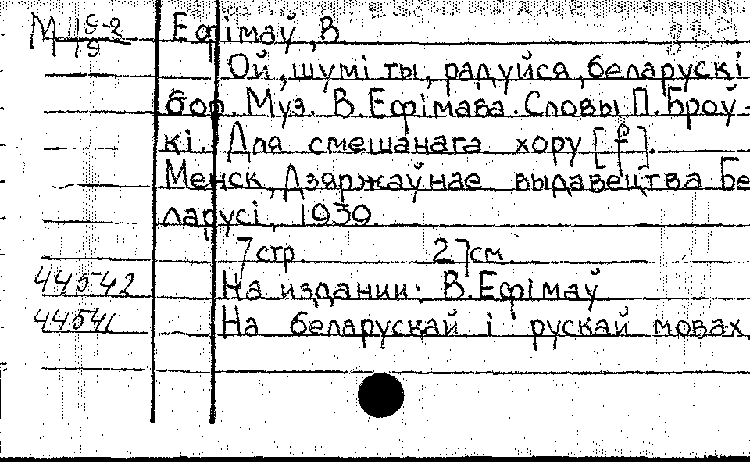 М 15-2/15 Ефімаў, В
Ой, шумі ты, радуйся, беларускі
бор. Муз. В. Ефімава. Словы П. Броў-
кі. Для смешанага хору [f].
Менск, Дзяржаўнае выдавецтва Бе
ларусі, 1939.
7 стр. 27 см
44542 На издании: В. Ефімаў
44541 На беларускай і рускай мовах